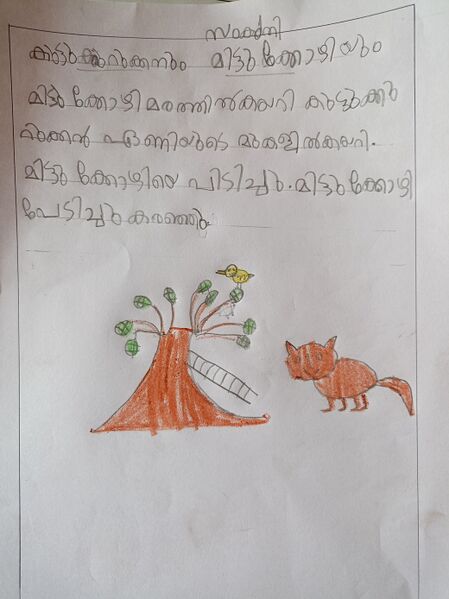 സാകൂനി
കുട്ടുകുറുക്കനും മിട്ടു കോഴിയും
മിട്ടു കോഴി മരത്തിൽകയറി കുട്ടുക്കു
റുക്കൻ ഏണിയുടെ മുകളിൽകയറി.
മിട്ടു കോഴിയെ പിടിച്ചു. മിട്ടു കോഴി
പേടിച്ചു കരഞ്ഞു